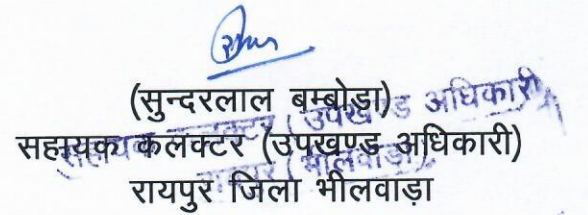 (सुन्दरलाल बम्बोडा)
सहायक कलक्टर (उपखण्ड अधिकारी)
रायपुर जिला भीलवाड़ा
सहायक कलक्टर (उपखण्ड अधिकारी)